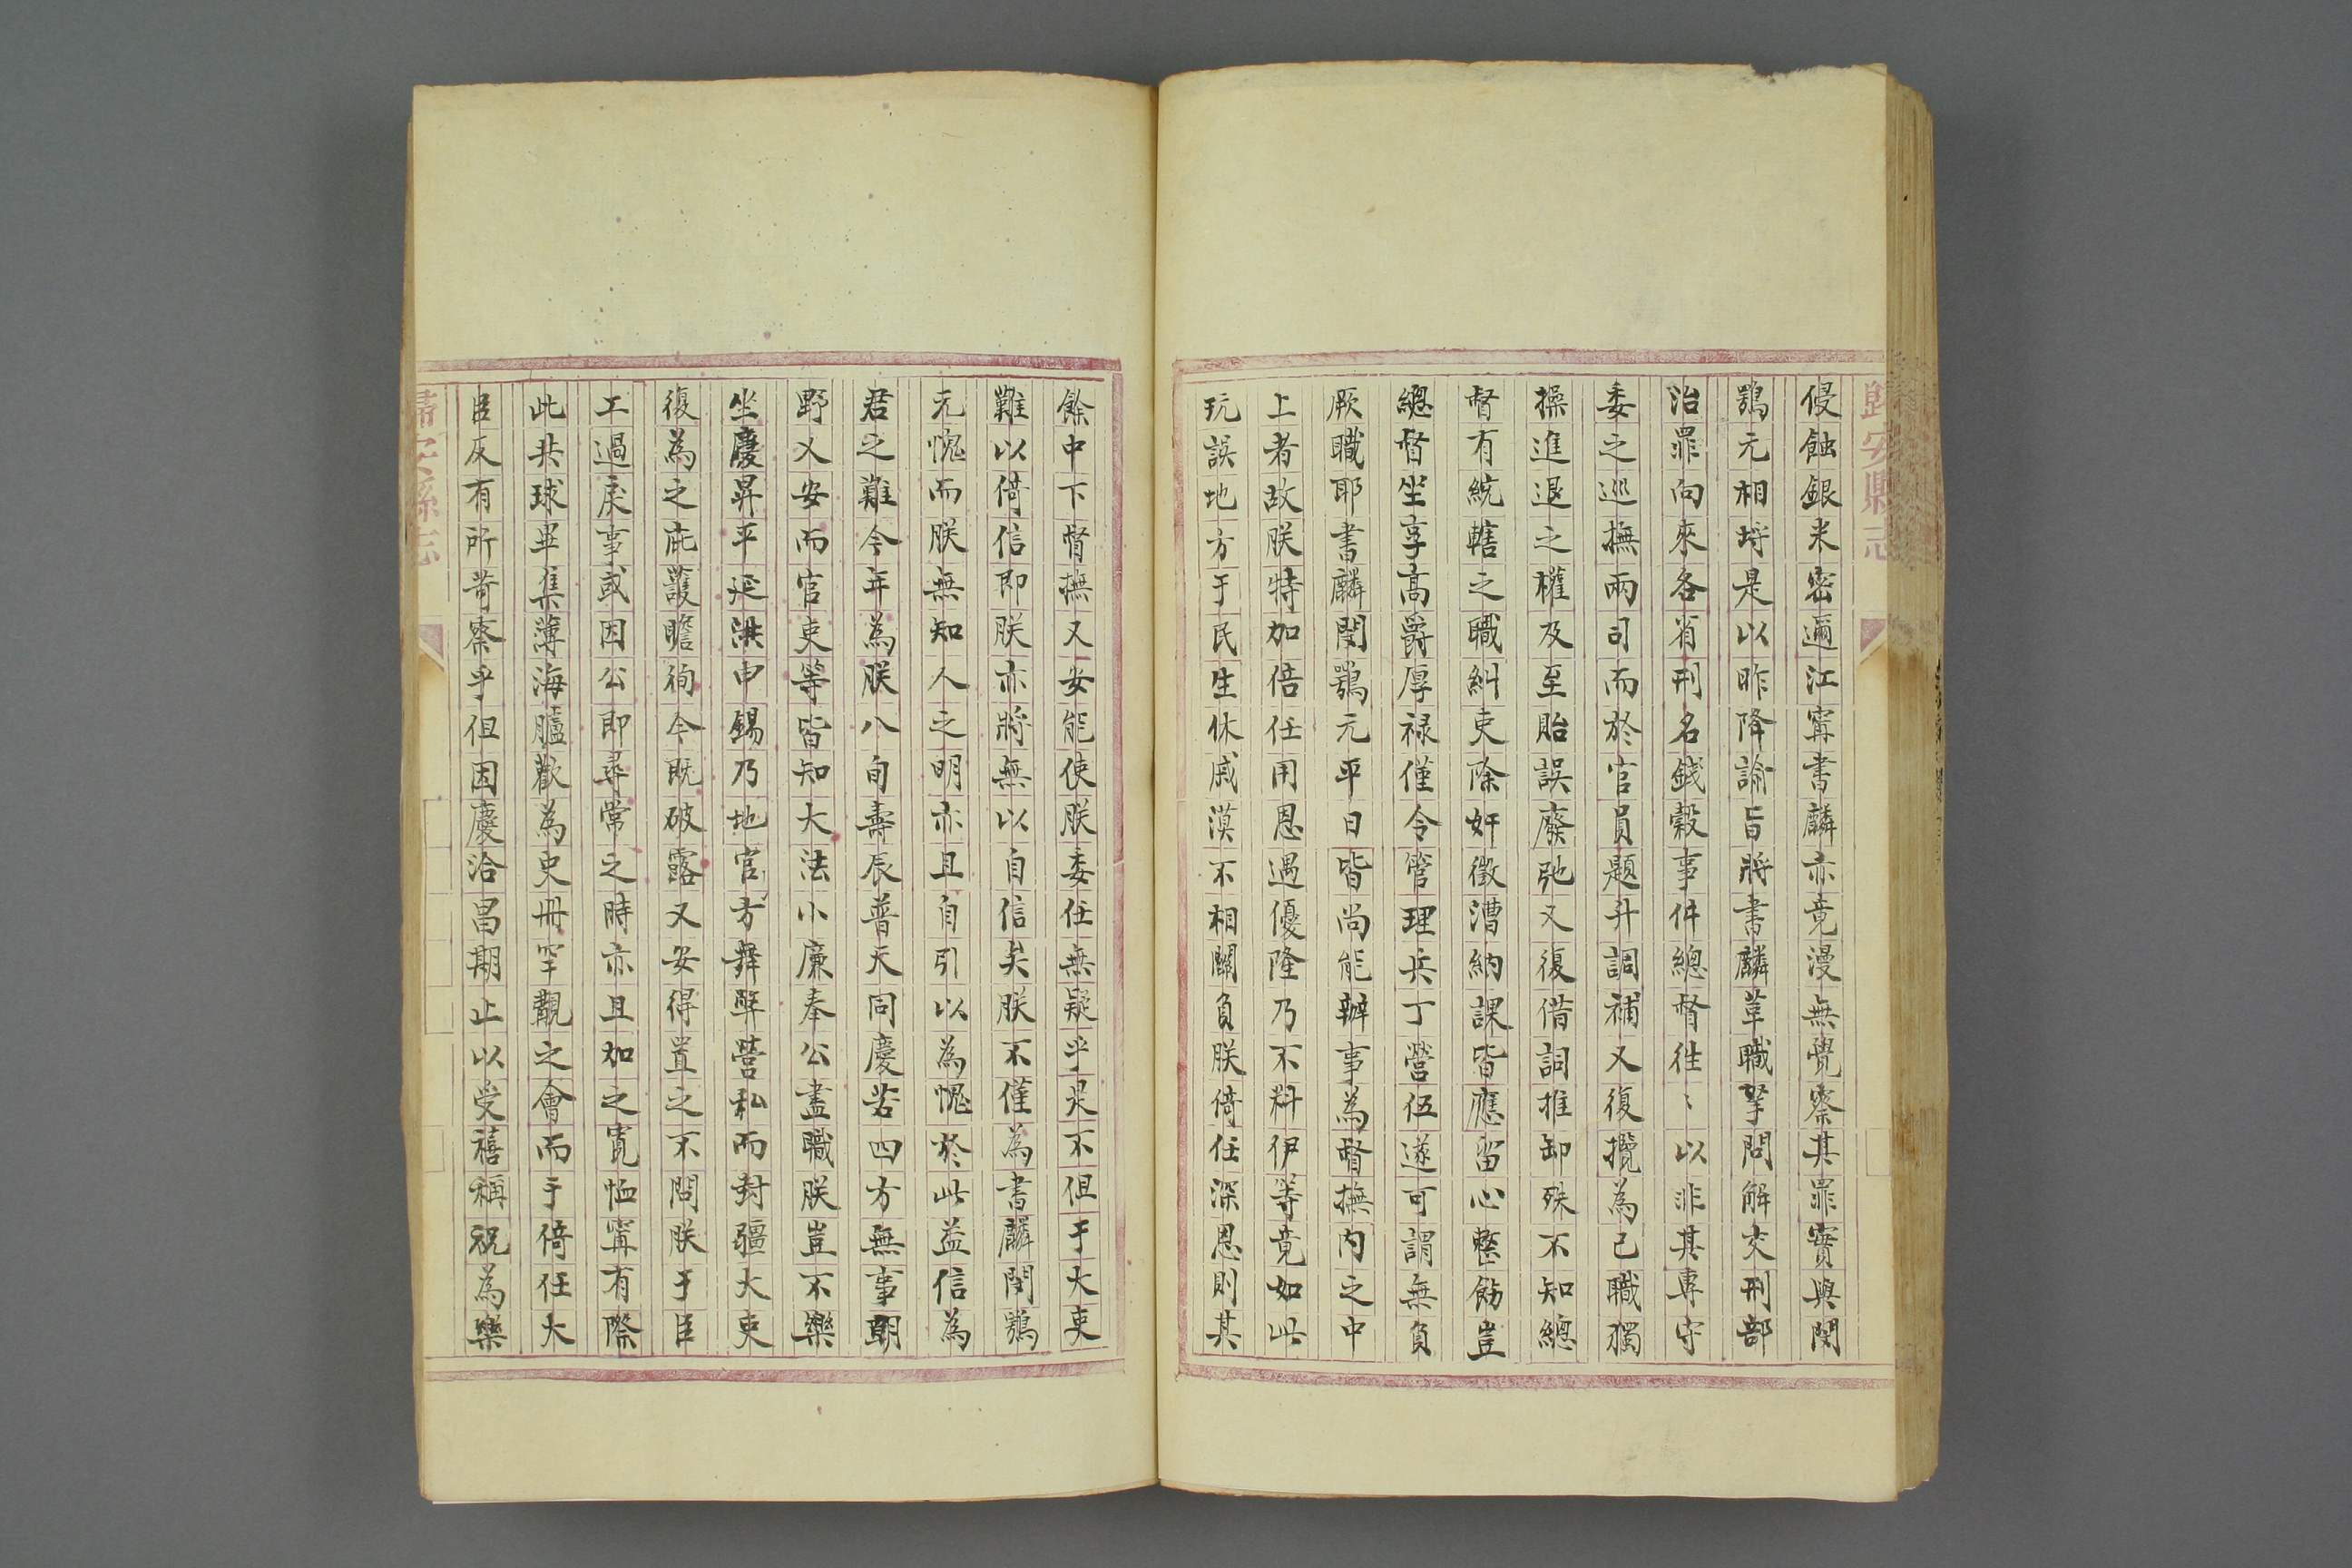 歸安縣志
侵蝕銀米密邇江甯書麟亦竟漫無覺察其罪實與閔
鶚元相埒是以昨降諭旨將書麟革職拏問解交刑部
治罪向來各省刑名錢穀事件總督徃〻以非其專守
委之巡撫兩司而於官員題升調補又復攬為己職獨
操進退之權及至貽誤廢弛又復借詞推卸殊不知總
督有統轄之職糾吏除奸徵漕納課皆應留心整飭豈
總督坐享高爵厚禄僅令管理兵丁營伍遂可謂無負
厥職耶書麟閔鶚元平日皆尚能辦事為督撫内之中
上者故朕特加倍任用恩遇優隆乃不料伊等竟如此
玩誤地方于民生休戚漠不相關負朕倚任深恩則其
餘中下督撫又安能使朕委任無疑乎是不但于大吏
難以倚信即朕亦將無以自信矣朕不僅為書麟閔鶚
元愧而朕無知人之明亦且自引以為愧於此益信為
君之難今年為朕八旬壽辰普天同慶若四方無事朝
野乂安而官吏等皆知大法小廉奉公盡職朕豈不樂
坐慶昇平延洪申錫乃地官方舞弊營私而封疆大吏
復為之庇護瞻徇今既破露又安得置之不問朕于臣
工過戾事或因公即尋常之時亦且加之寬恤甯有際
此共球畢集薄海臚歡為史冊罕觀之會而于倚任大
臣反有所苛察乎但因慶洽昌期止以受禧稱祝為樂
歸安縣志